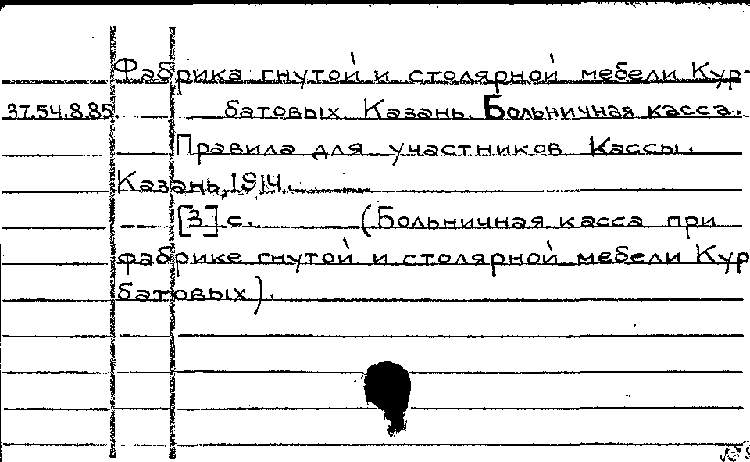 Фабрика гнутой и столярной мебели Кур-
37.54.8.85 батовых. Казань. Больничная касса.
Правила для участников Кассы.
Казань, 1914.
[3] с. (Больничная касса при
фабрике гнутой и столярной мебели Кур
батовых).